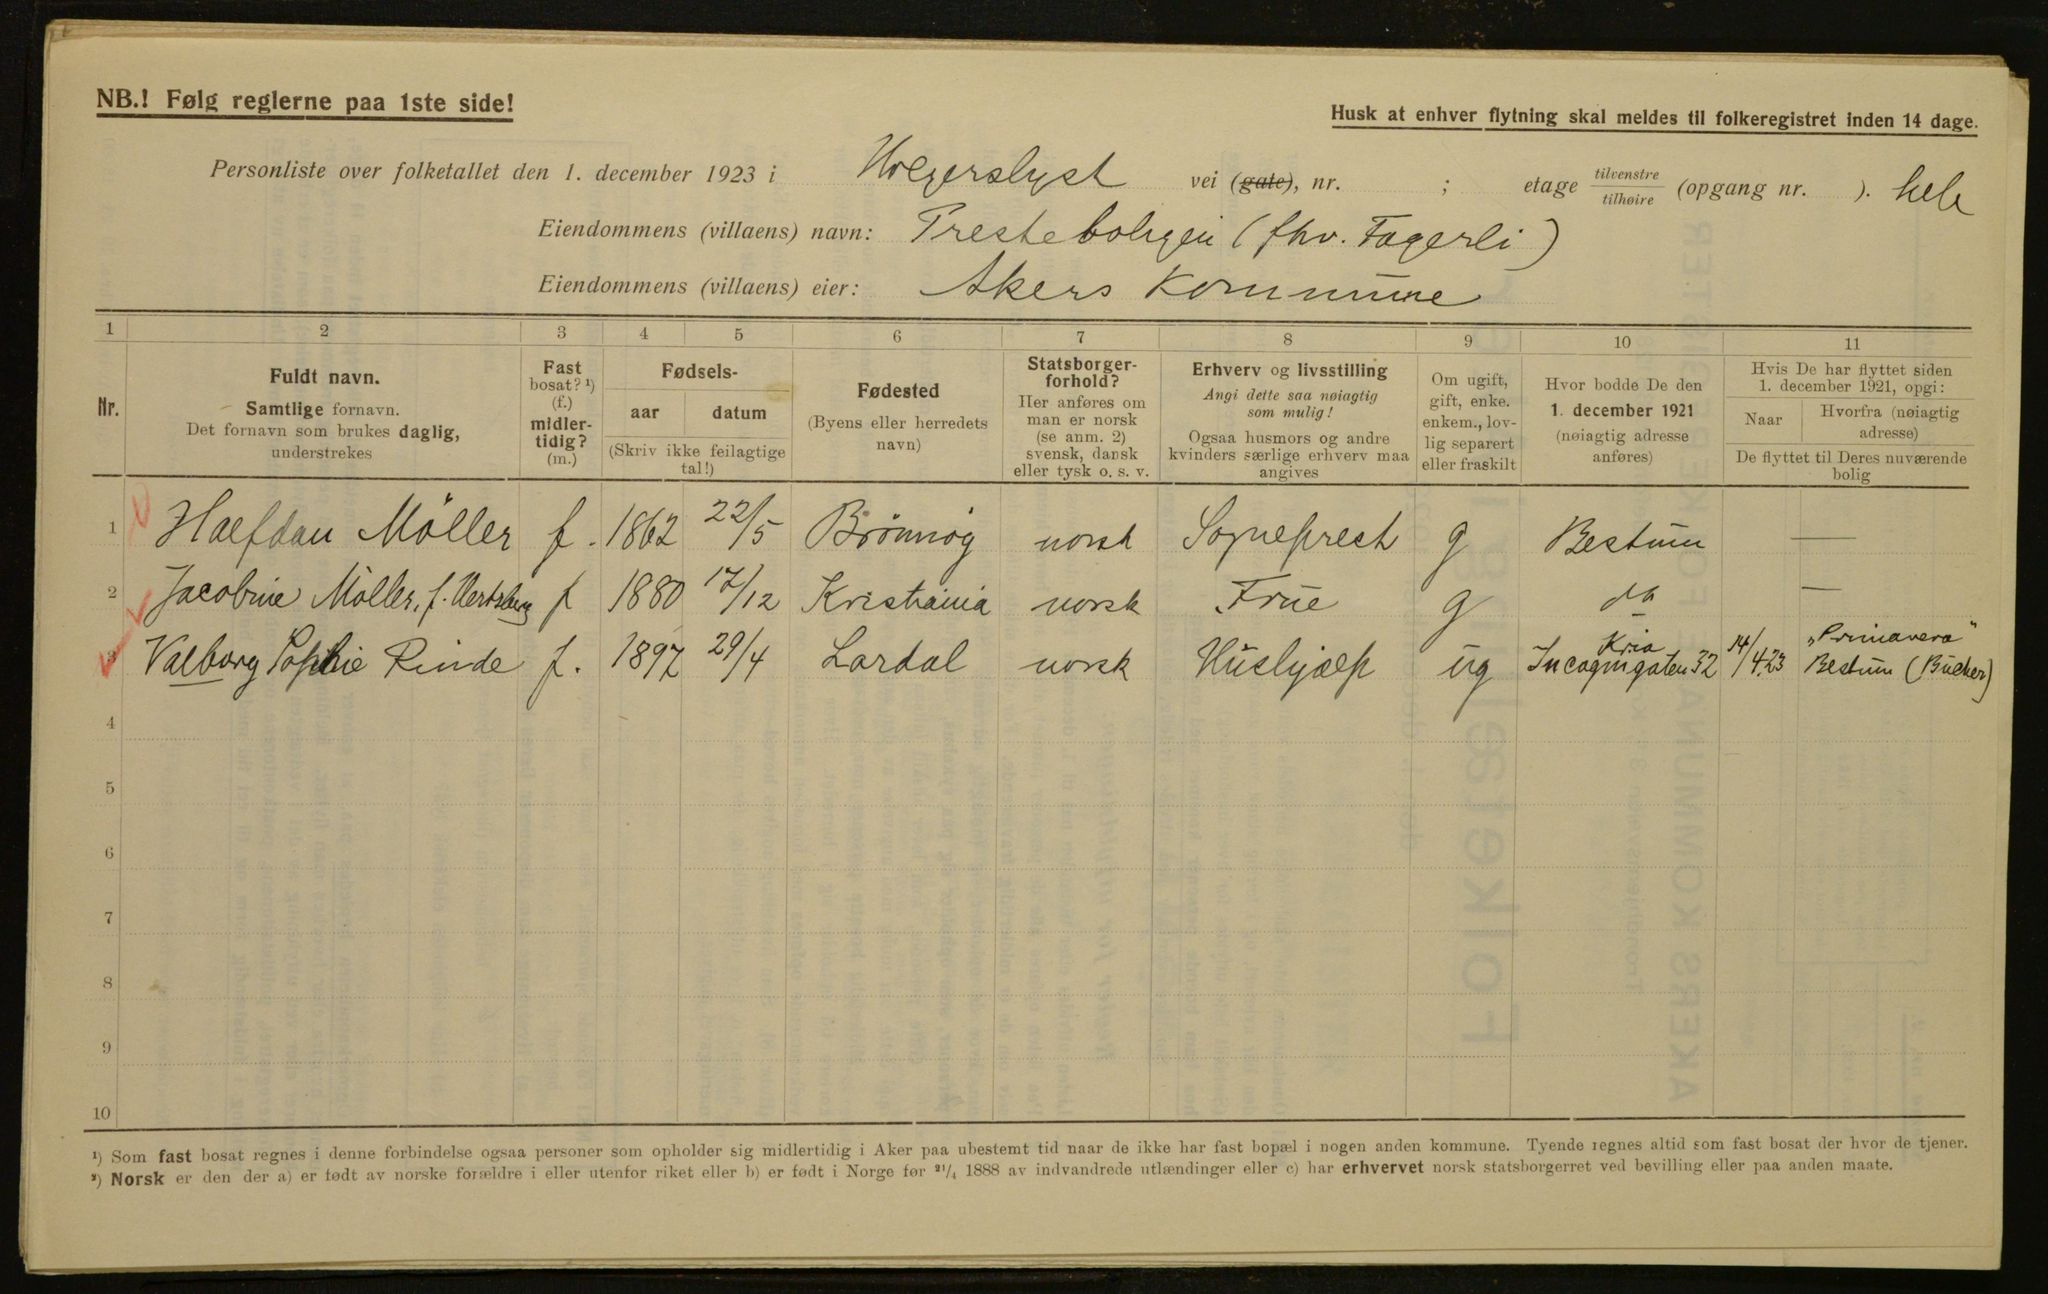 NB.! Følg reglerne paa 1ste side!
Husk at enhver flytning skal meldes til folkeregistret inden 14 dage.
Personliste over folketallet den 1. december 1923 i Holgerslyst vei (gate), nr. ; etage tilvenstre tilhøire (opgang nr. ). hele
Eiendommens (villaens) navn: Presteboligen (fhv. Fagerli)
Eiendommens (villaens) eier: Akers Kommune
1 2 3 4 5 6 7 8 9 10 11
Nr.
Fuldt navn.
Samtlige fornavn.
Det fornavn som brukes daglig,
understrekes
Fast
bosat? ¹)
(f.)
midler-
tidig?
(m.)
Fødsels-
aar datum
(Skriv ikke feilagtige
tal!)
Fødested
(Byens eller herredets
navn)
Statsborger-
forhold?
Her anføres om
man er norsk
(se anm. 2)
svensk, dansk
eller tysk o. s. v.
Erhverv og livsstilling
Angi dette saa nøiagtig
som mulig!
Ogsaa husmors og andre
kvinders særlige erhverv maa
angives
Om ugift,
gift, enke.
enkem., lov-
lig separert
eller fraskilt
Hvor bodde De den
1. december 1921
(nøiagtig adresse
anføres)
Hvis De har flyttet siden
1. december 1921, opgi:
Naar Hvorfra (nøiagtig
adresse)
De flyttet til Deres nuværende
bolig
1 Halfdan Möller f. 1862 22/5 Brønnøy norsk Sogneprest g Bestum —
2 Jacobine Möller, f. Hertzberg f 1880 17/12 Kristiania norsk Frue g do —
3 Valborg Sophie Rinde f. 1897 29/4 Lardal norsk Hushjælp ug Kria Incognitogaten 32 14/4 23 „Primavera" Bestum (Bucher)
4
5
6
7
8
9
10
¹) Som fast bosat regnes i denne forbindelse ogsaa personer som opholder sig midlertidig i Aker paa ubestemt tid naar de ikke har fast bopæl i nogen anden kommune. Tyende regnes altid som fast bosat der hvor de tjener.
²) Norsk er den der a) er født av norske forældre i eller utenfor riket eller b) er født i Norge før 21/4 1888 av indvandrede utlændinger eller c) har erhvervet norsk statsborgerret ved bevilling eller paa anden maate.